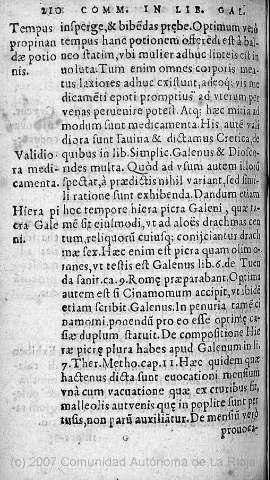 210 COMM. IN LIB. GAL.
Tempus
propinan
dæ potio
nis.
insperge, & bibẽdas prębe. Optimum verò
tempus hanc potionem offerẽdi est à bal-
neo statim, vbi mulier adhuc linteis est in-
uoluta. Tum enim omnes corporis mea-
tus laxiores adhuc existunt, adeoq́; vis me
dicamẽti epoti promptius ad vterum per
venas peruenire potest. Atq; hæc mitia ad
modum sunt medicamenta. His autẽ vali
diora sunt sauina & dictamus Cretica, de
Validio
ra medi
camenta.
quibus in lib. Simplic. Galenus & Diosco
rides multa. Quòd ad vsum autem illorũ
spectat, à prædictis nihil variant, sed simi-
li ratione sunt exhibenda. Dandum etiam
Hiera pi
cra Gale
ni.
hoc tempore hiera picra Galeni, quæ ta-
mẽ sit eiusmodi, vt ad aloës drachmas cen
tum, reliquorũ cuiusq; conijciantur drach
mæ sex. Hæc enim est picra quam olim o-
nes, vt testis est Galenus lib. 6. de Tuen
da sanit. ca. 9. Romę præparabant. Optima
autem est si Cinamomum accipit, vt ibidẽ
etiam scribit Galenus. In penuria tamẽ ci
namomi, ponendũ pro eo esse optimę ca-
siæ duplum statuit. De compositione Hie
ræ picrę plura habes apud Galenum in li.
7. Ther. Metho. cap. 11. Hæc quidem quæ
hactenus dicta sunt euocationi mensium
vnà cum vacuatione quæ ex cruribus fit,
malleolis aut venis quę in poplite sunt per
tusis, non parũ auxiliãtur. De mensiũ verò
G
prouoca-
(c) 2007 Comunidad Autónoma de La Rioja